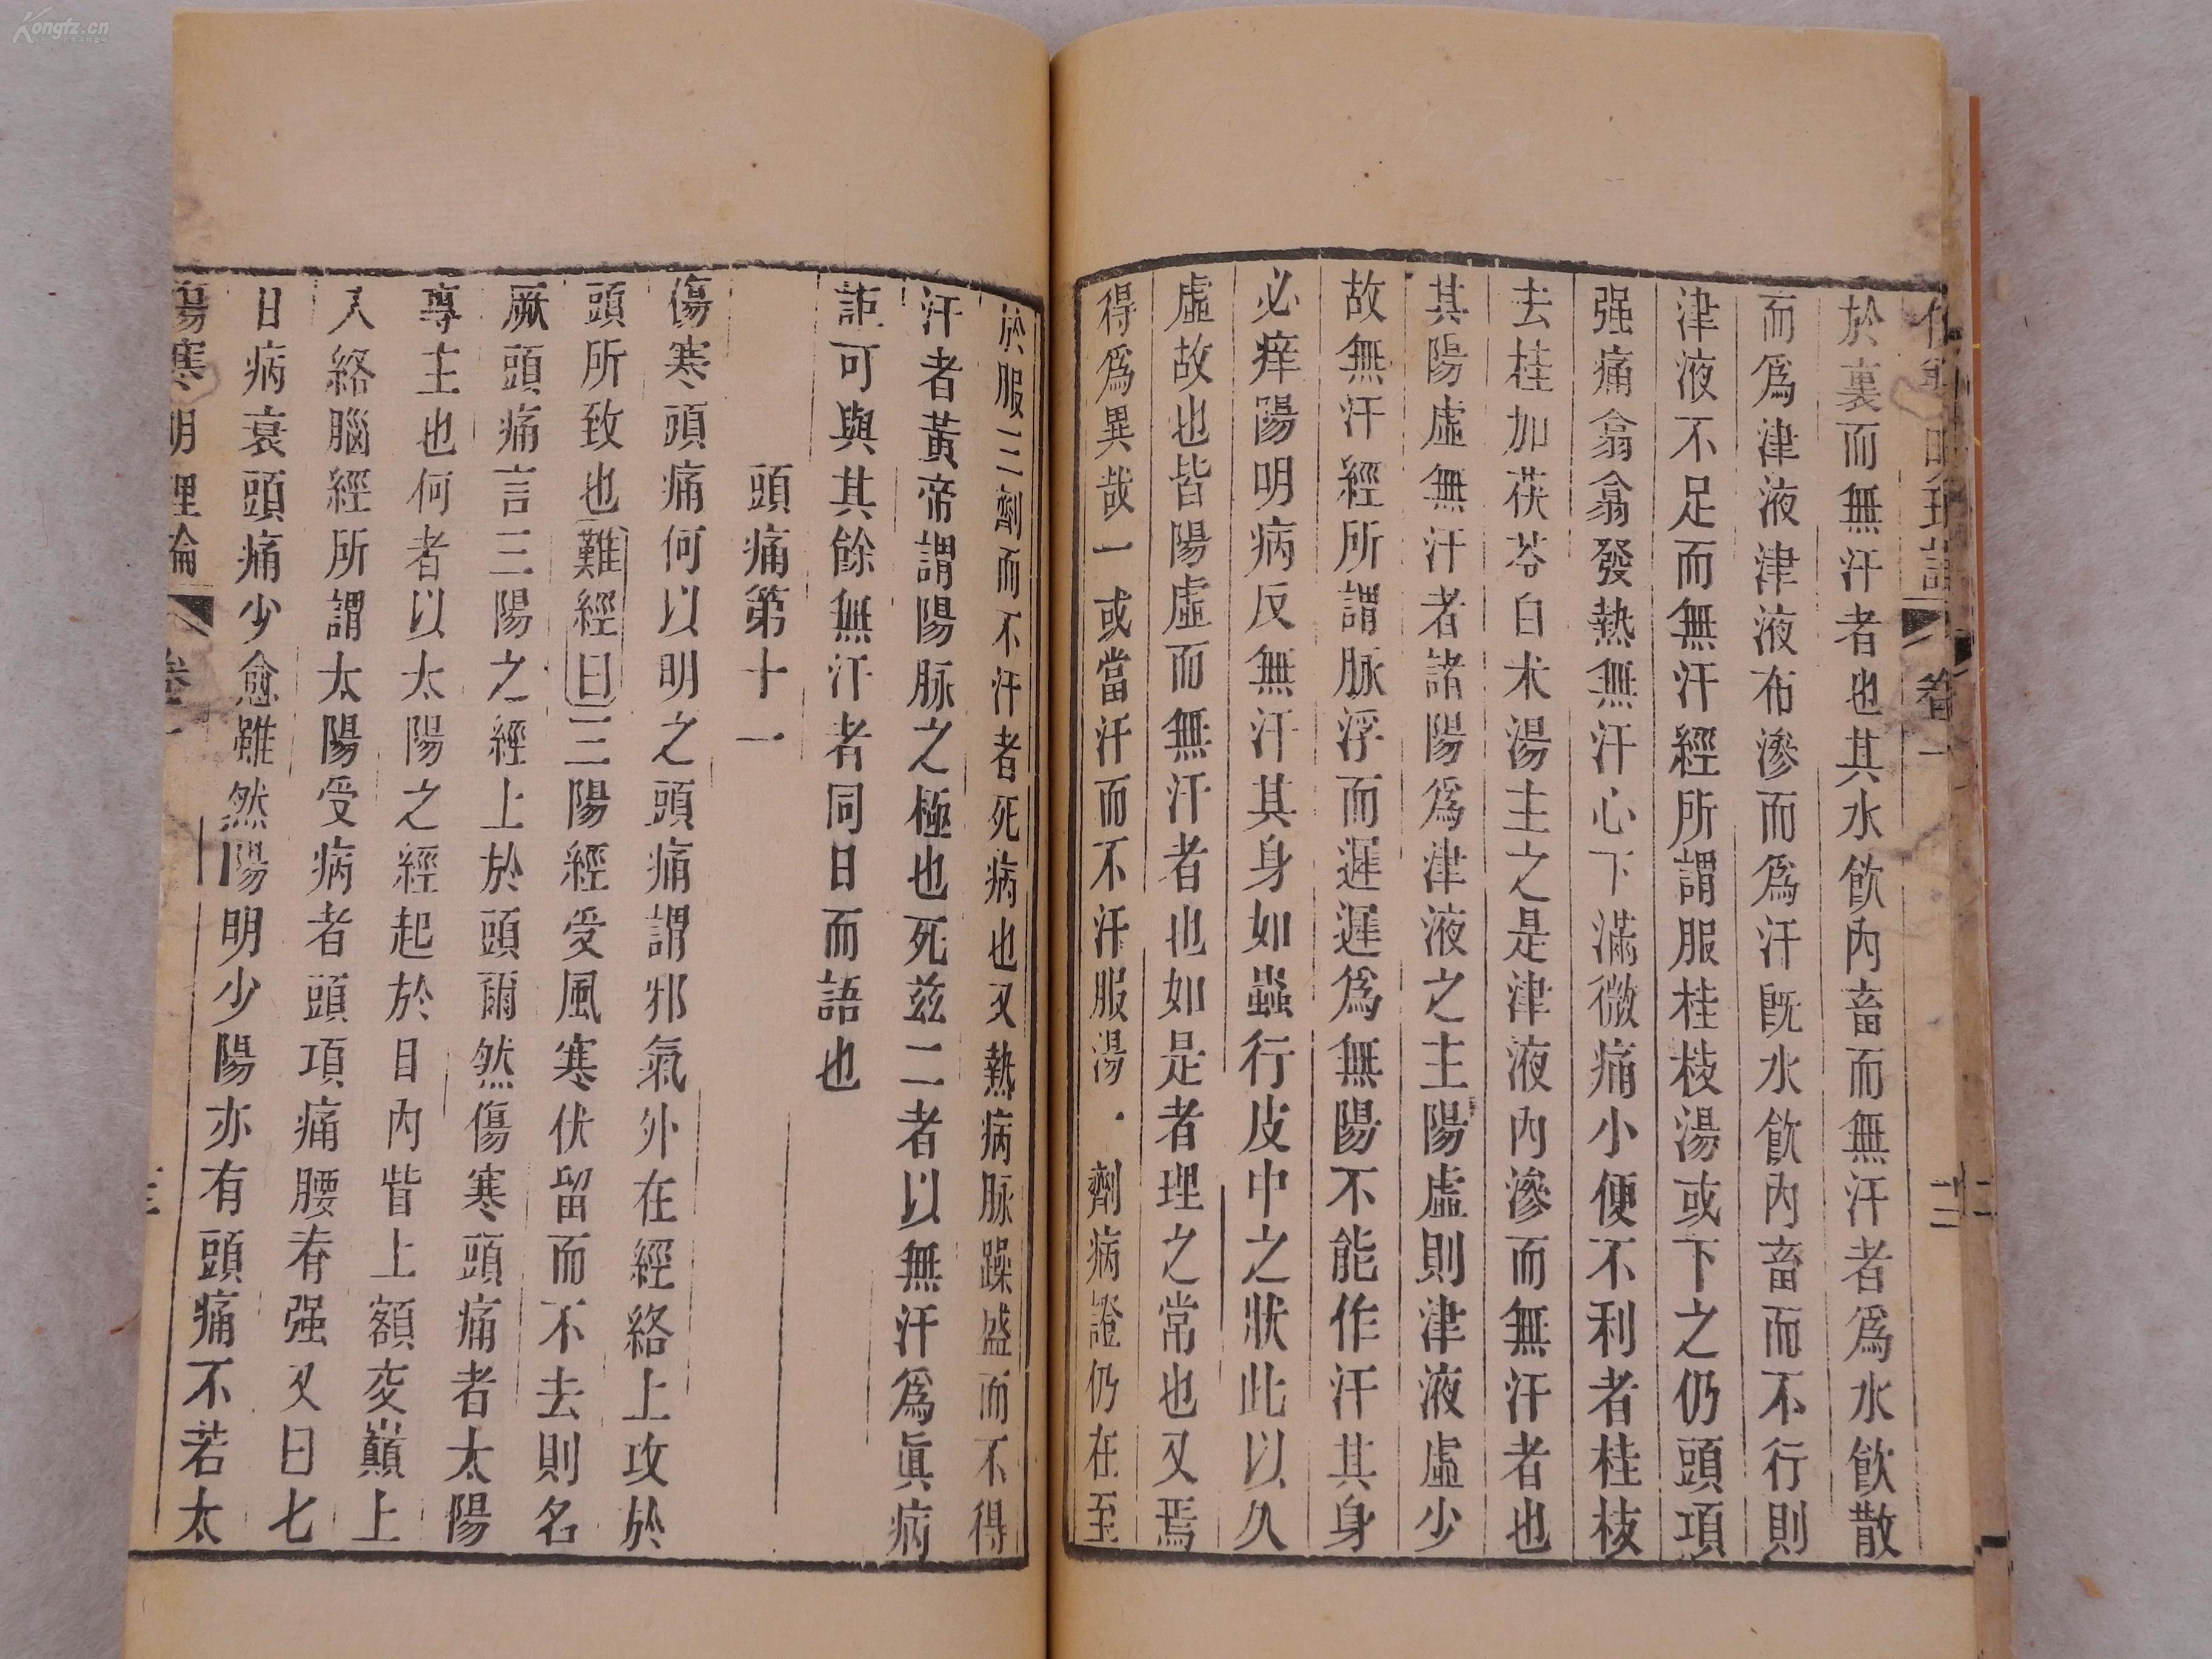 Kongfz.cn
於裏而無汗者也其水飲內畜而無汗者爲水飲散
而爲津液津液布滲而爲汗旣水飲內畜而不行則
津液不足而無汗經所謂服桂枝湯或下之仍頭項
强痛翕翕發熱無汗心下滿微痛小便不利者桂枝
去桂加茯苓白朮湯主之是津液內滲而無汗者也
其陽虛無汗者諸陽爲津液之主陽虛則津液虛少
故無汗經所謂脉浮而遲遲爲無陽不能作汗其身
必痒陽明病反無汗其身如蟲行皮中之狀此以久
虛故也皆陽虛而無汗者也如是者理之常也又焉
得爲異哉一或當汗而不汗服湯劑病證仍在至
於服三劑而不汗者死病也又熱病脉躁盛而不得
汗者黃帝謂陽脉之極也死兹二者以無汗爲眞病
詎可與其餘無汗者同日而語也
頭痛第十一
傷寒頭痛何以明之頭痛謂邪氣外在經絡上攻於
頭所致也難經曰三陽經受風寒伏留而不去則名
厥頭痛言三陽之經上於頭爾然傷寒頭痛者太陽
專主也何者以太陽之經起於目內眥上額交巔上
入絡腦經所謂太陽受病者頭項痛腰脊强又曰七
日病衰頭痛少愈雖然陽明少陽亦有頭痛不若太
傷寒明理論 卷一